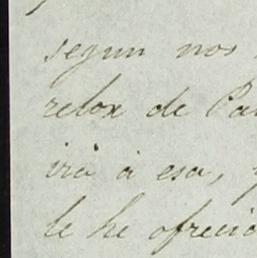 segun nos
relox de Pa
irá á esa,
le he ofreci